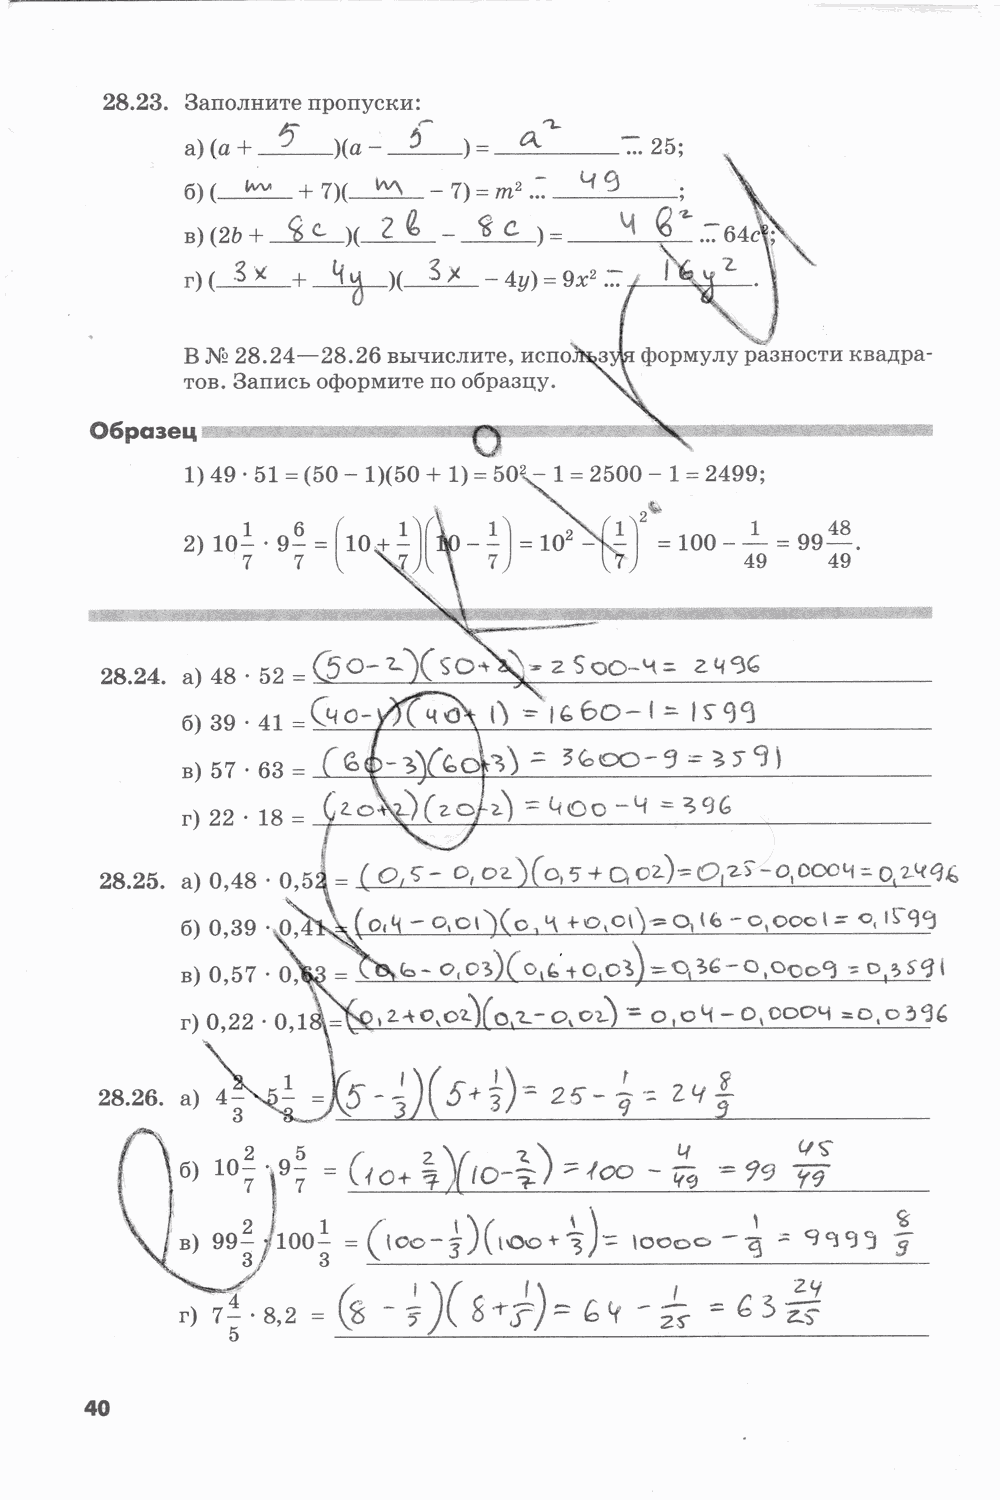 28.23. Заполните пропуски:
а) (a + 5)(a – 5) = a² – ... 25;
б) (m + 7)(m – 7) = m² – ... 49;
в) (2b + 8c)(2b – 8c) = 4b² – ... 64c²;
г) (3x + 4y)(3x – 4y) = 9x² – ... 16y².
В № 28.24—28.26 вычислите, используя формулу разности квадра-
тов. Запись оформите по образцу.
Образец
1) 49 · 51 = (50 – 1)(50 + 1) = 50² – 1 = 2500 – 1 = 2499;
2) 10 1/7 · 9 6/7 = (10 + 1/7)(10 – 1/7) = 10² – (1/7)² = 100 – 1/49 = 99 48/49.
28.24. а) 48 · 52 = (50-2)(50+2) = 2500-4 = 2496
б) 39 · 41 = (40-1)(40+1) = 1660-1 = 1599
в) 57 · 63 = (60-3)(60+3) = 3600-9 = 3591
г) 22 · 18 = (20+2)(20-2) = 400-4 = 396
28.25. а) 0,48 · 0,52 = (0,5-0,02)(0,5+0,02)=0,25-0,0004=0,2496
б) 0,39 · 0,41 = (0,4-0,01)(0,4+0,01)=0,16-0,0001=0,1599
в) 0,57 · 0,63 = (0,6-0,03)(0,6+0,03)=0,36-0,0009=0,3591
г) 0,22 · 0,18 = (0,2+0,02)(0,2-0,02) = 0,04-0,0004=0,0396
28.26. а) 4 2/3 · 5 1/3 = (5 - 1/3)(5 + 1/3) = 25 - 1/9 = 24 8/9
б) 10 2/7 · 9 5/7 = (10 + 2/7)(10 - 2/7) = 100 - 4/49 = 99 45/49
в) 99 2/3 · 100 1/3 = (100 - 1/3)(100 + 1/3) = 10000 - 1/9 = 9999 8/9
г) 7 4/5 · 8,2 = (8 - 1/5)(8 + 1/5) = 64 - 1/25 = 63 24/25
40